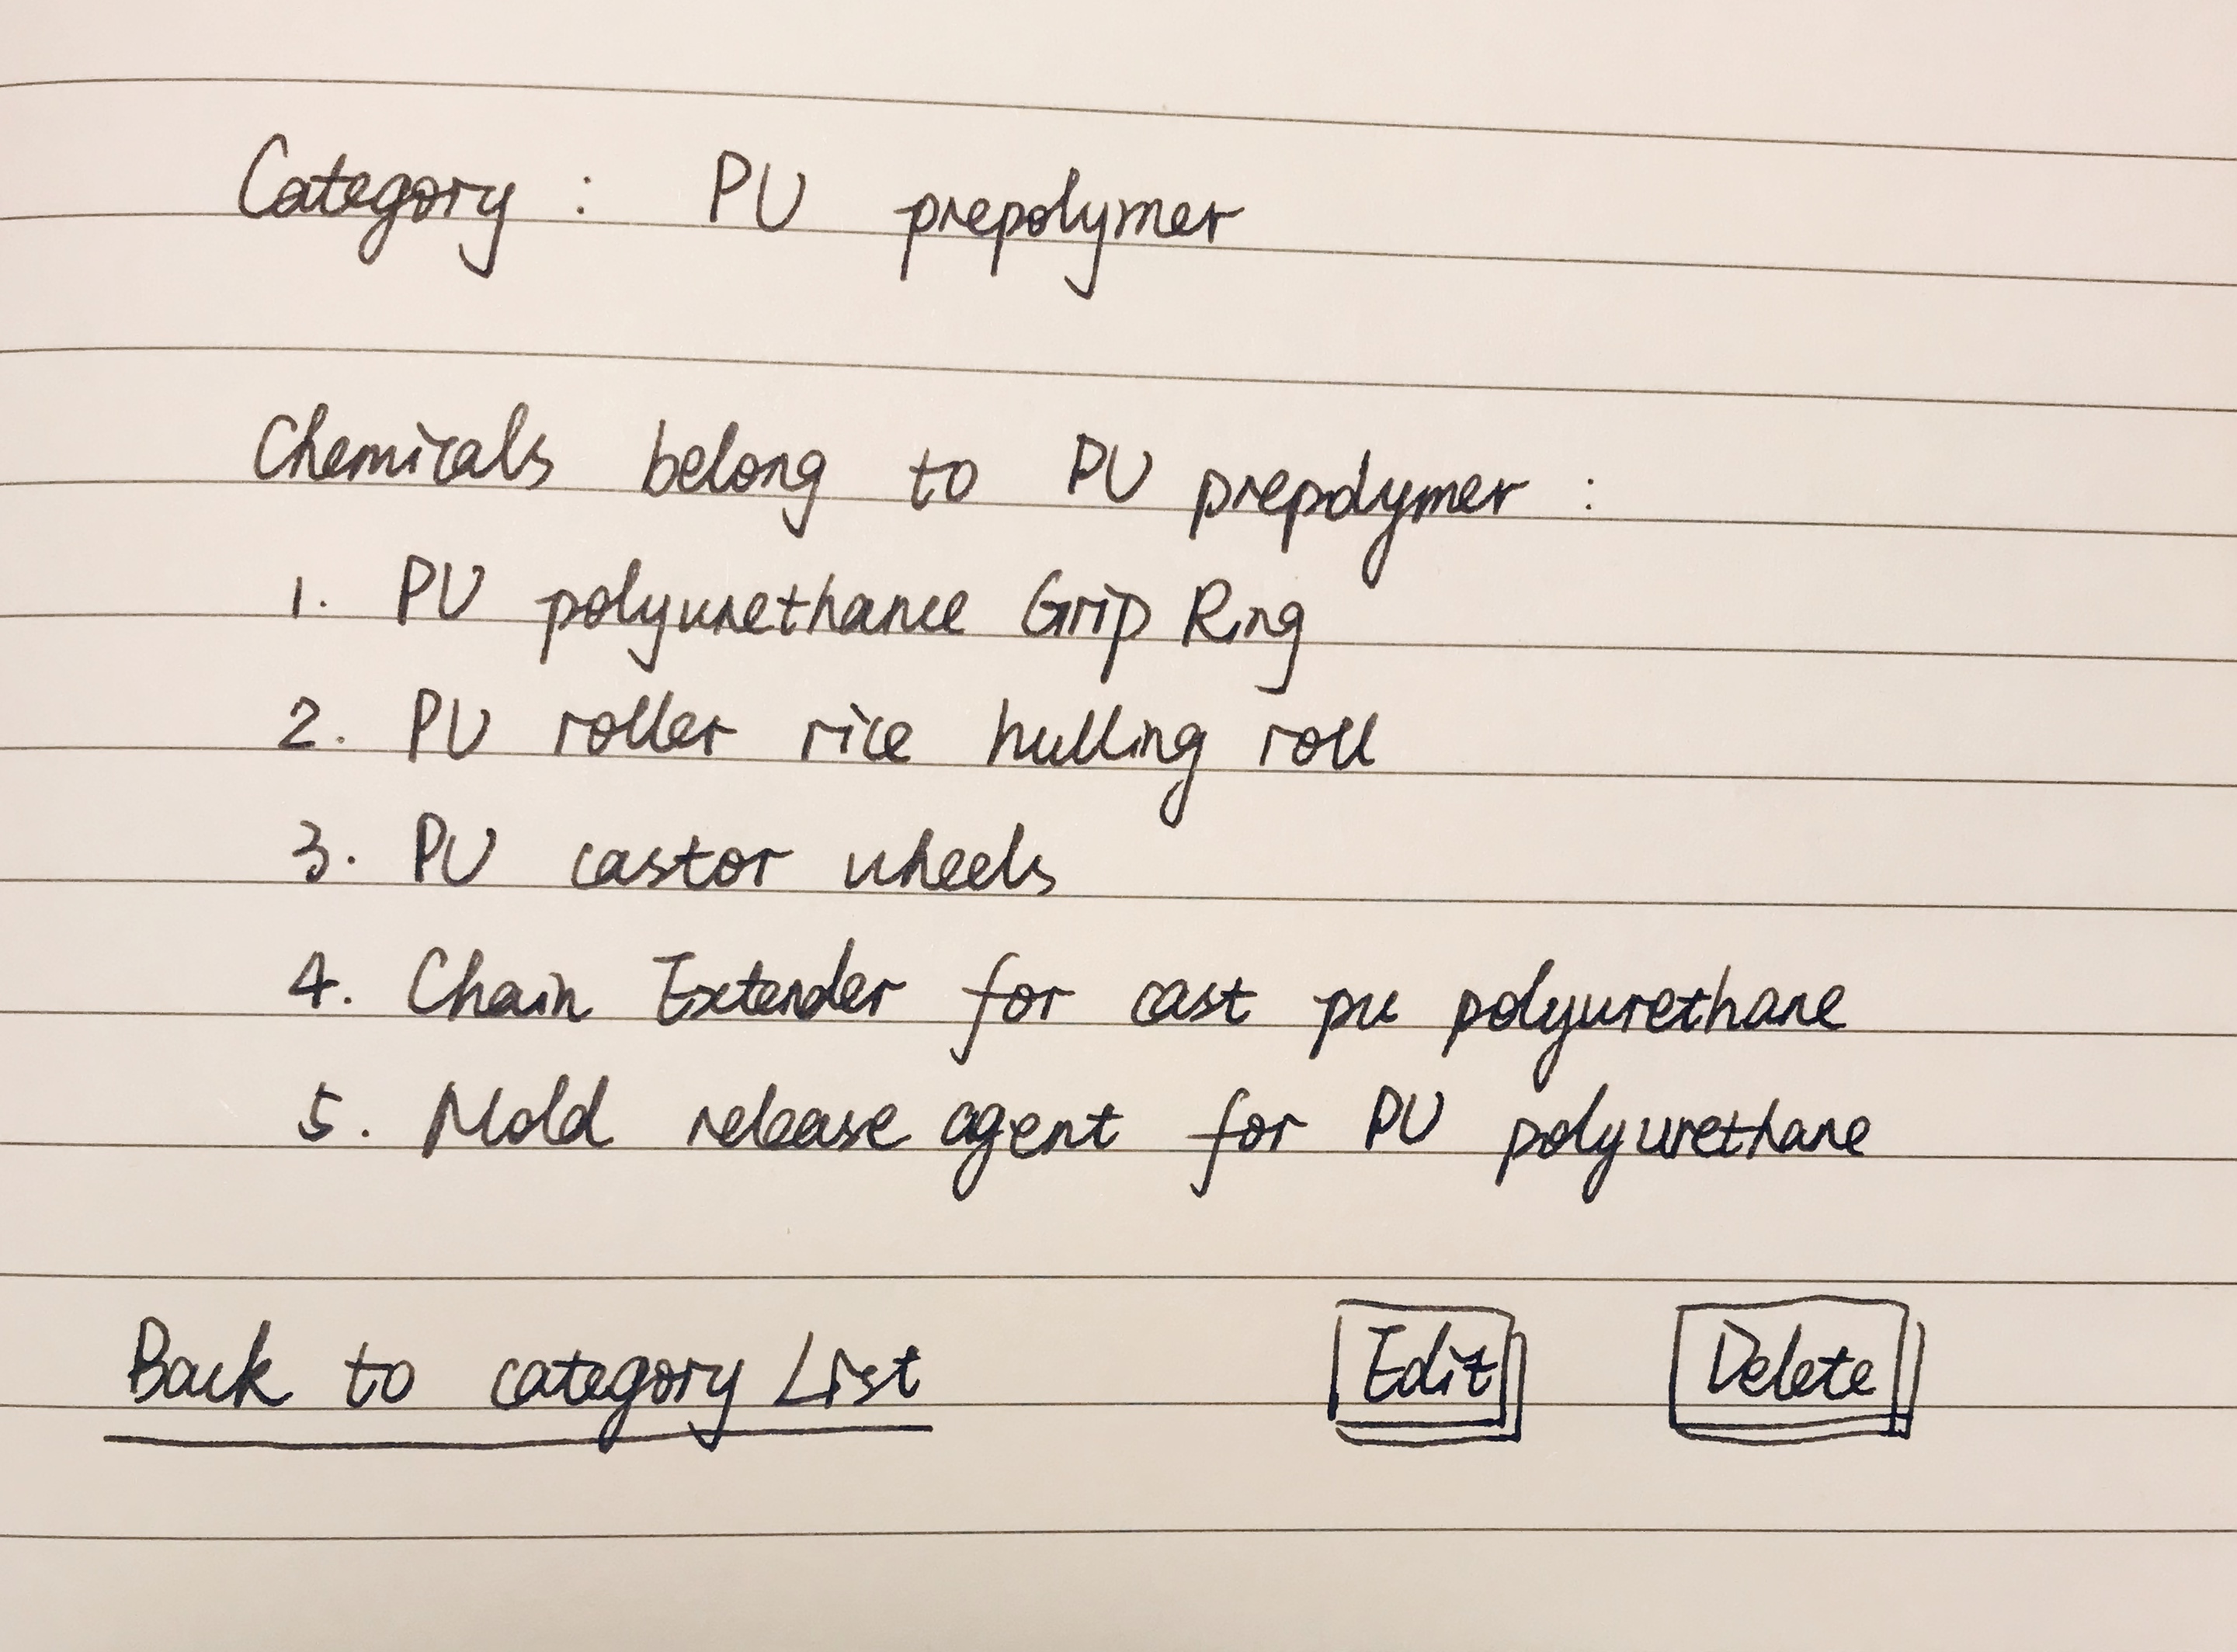 Category : PU prepolymer
Chemicals belong to PU prepolymer :
1. PU polyurethance Grip Ring
2. PU roller rice hulling roll
3. PU castor wheels
4. Chain Extender for cast pu polyurethane
5. Mold release agent for PU polyurethane
Back to category List Edit Delete